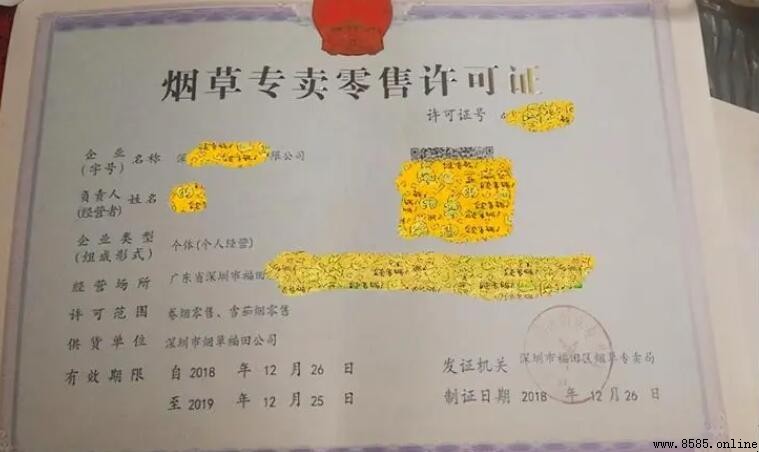 烟草专卖零售许可证
许可证号
企业名称 深 限公司
(字号)
负责人姓名
(经营者)
企业类型 个体(个人经营)
(组成形式)
经营场所 广东省深圳市福田
许可范围 卷烟零售、雪茄烟零售
供货单位 深圳市烟草福田公司
有效期限 自 2018 年 12 月 26 日
至 2019 年 12 月 25 日
发证机关 深圳市福田区烟草专卖局
制证日期 2018 年 12 月 26 日
www.8585.online